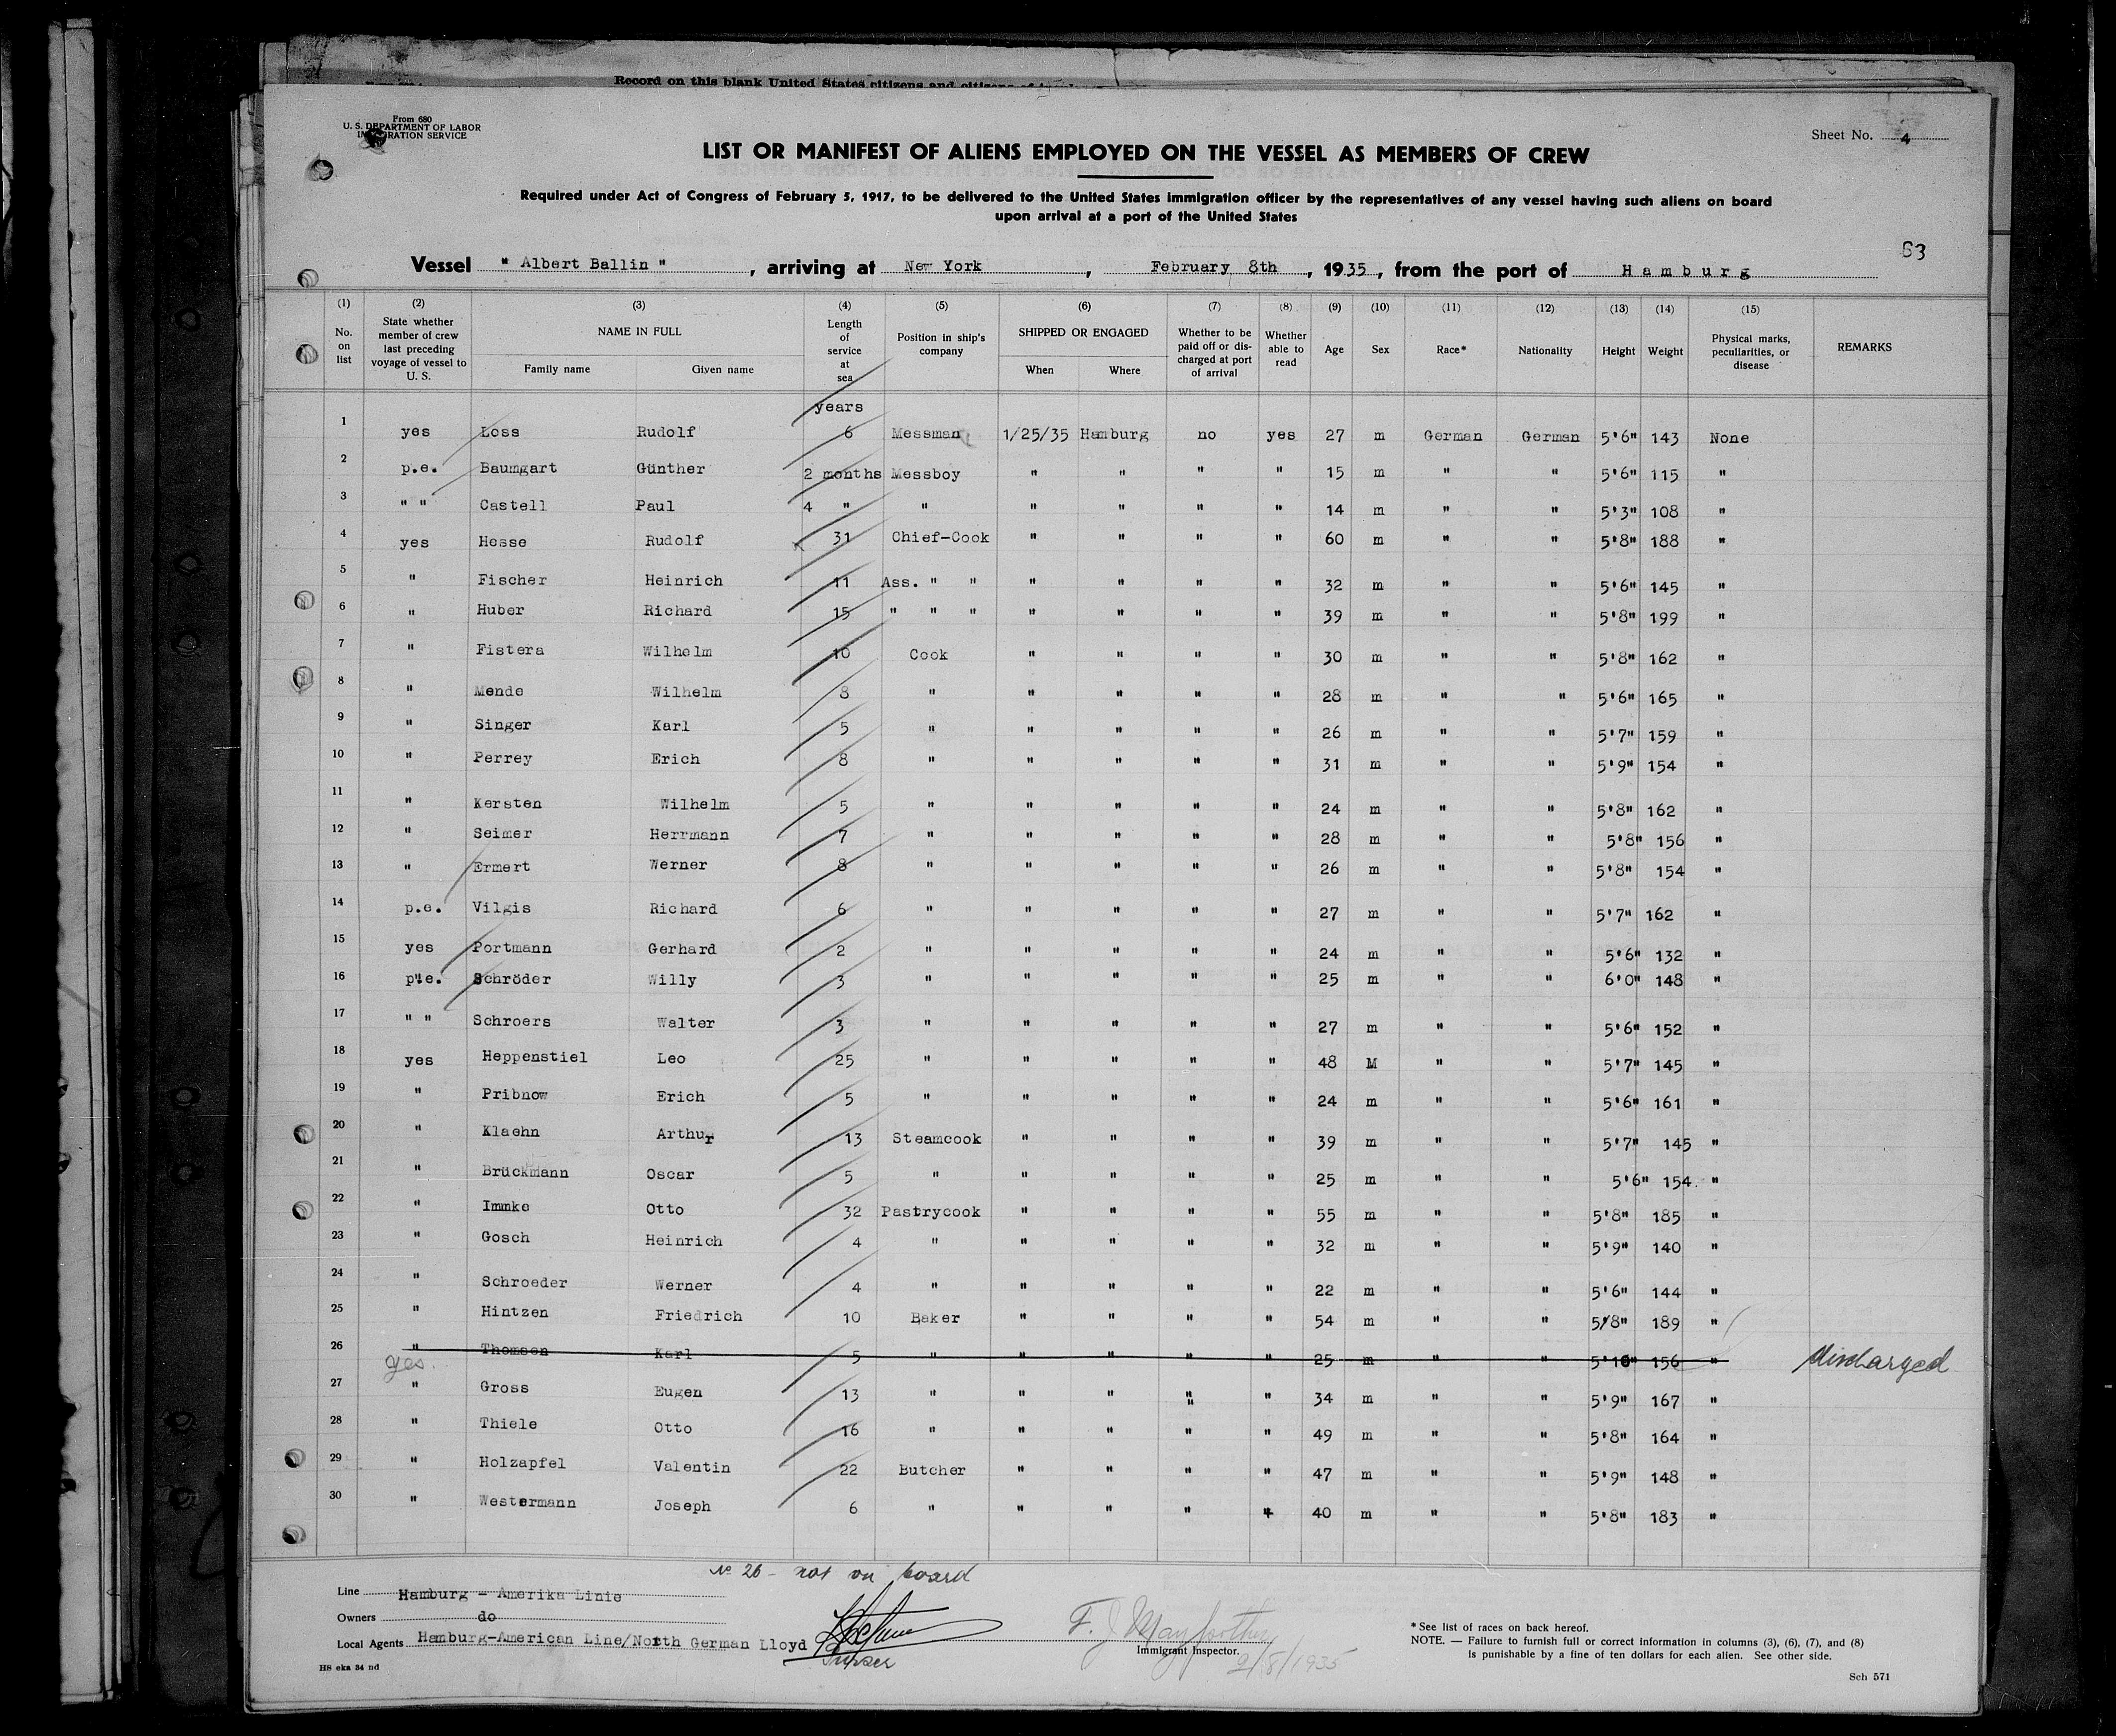 Record on this blank United States citizens and citizens of
From 680
U. S. DEPARTMENT OF LABOR
IMMIGRATION SERVICE
Sheet No. 4
LIST OR MANIFEST OF ALIENS EMPLOYED ON THE VESSEL AS MEMBERS OF CREW
Required under Act of Congress of February 5, 1917, to be delivered to the United States immigration officer by the representatives of any vessel having such aliens on board
upon arrival at a port of the United States
63
Vessel " Albert Ballin " , arriving at New York , February 8th , 1935 , from the port of Hamburg
(1) (2) (3) (4) (5) (6) (7) (8) (9) (10) (11) (12) (13) (14) (15)
No. on list State whether member of crew last preceding voyage of vessel to U. S. NAME IN FULL Family name Given name Length of service at sea Position in ship's company SHIPPED OR ENGAGED When Where Whether to be paid off or discharged at port of arrival Whether able to read Age Sex Race* Nationality Height Weight Physical marks, peculiarities, or disease REMARKS
years
1 yes Loss Rudolf 6 Messman 1/25/35 Hamburg no yes 27 m German German 5'6" 143 None
2 p.e. Baumgart Günther 2 months Messboy " " " " 15 m " " 5'6" 115 "
3 " " Castell Paul 4 " " " " " " 14 m " " 5'3" 108 "
4 yes Hesse Rudolf 31 Chief-Cook " " " " 60 m " " 5'8" 188 "
5 " Fischer Heinrich 11 Ass. " " " " " " 32 m " " 5'6" 145 "
6 " Huber Richard 15 " " " " " " " 39 m " " 5'8" 199 "
7 " Fistera Wilhelm 10 Cook " " " " 30 m " " 5'8" 162 "
8 " Mende Wilhelm 8 " " " " " 28 m " " 5'6" 165 "
9 " Singer Karl 5 " " " " " 26 m " " 5'7" 159 "
10 " Perrey Erich 8 " " " " " 31 m " " 5'9" 154 "
11 " Kersten Wilhelm 5 " " " " " 24 m " " 5'8" 162 "
12 " Seimer Herrmann 7 " " " " " 28 m " " 5'8" 156 "
13 " Ermert Werner 8 " " " " " 26 m " " 5'8" 154 "
14 p.e. Vilgis Richard 6 " " " " " 27 m " " 5'7" 162 "
15 yes Portmann Gerhard 2 " " " " " 24 m " " 5'6" 132 "
16 p.e. Schröder Willy 3 " " " " " 25 m " " 6'0" 148 "
17 " " Schroers Walter 3 " " " " " 27 m " " 5'6" 152 "
18 yes Heppenstiel Leo 25 " " " " " 48 M " " 5'7" 145 "
19 " Pribnow Erich 5 " " " " " 24 m " " 5'6" 161 "
20 " Klaehn Arthur 13 Steamcook " " " " 39 m " " 5'7" 145 "
21 " Brückmann Oscar 5 " " " " " 25 m " " 5'6" 154 "
22 " Immke Otto 32 Pastrycook " " " " 55 m " " 5'8" 185 "
23 " Gosch Heinrich 4 " " " " " 32 m " " 5'9" 140 "
24 " Schroeder Werner 4 " " " " " 22 m " " 5'6" 144 "
25 " Hintzen Friedrich 10 Baker " " " " 54 m " " 5'8" 189 "
26 " yes. Thomsen Karl 5 " " " " " 25 m " " 5'10" 156 " discharged
27 " Gross Eugen 13 " " " " " 34 m " " 5'9" 167 "
28 " Thiele Otto 16 " " " " " 49 m " " 5'8" 164 "
29 " Holzapfel Valentin 22 Butcher " " " " 47 m " " 5'9" 148 "
30 " Westermann Joseph 6 " " " " " 40 m " " 5'8" 183 "
No 26 - not on board
Line Hamburg - Amerika Linie
Owners do
Local Agents Hamburg-American Line/North German Lloyd
Purser
F. J.
Immigrant Inspector.
2/8/1935
* See list of races on back hereof.
NOTE. — Failure to furnish full or correct information in columns (3), (6), (7), and (8)
is punishable by a fine of ten dollars for each alien. See other side.
HS eka 34 nd
Sch 571